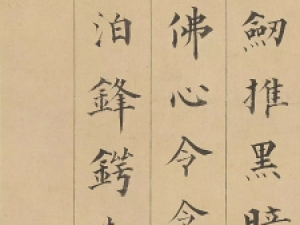 劒推黑暗
佛心令含
泊鋒鍔